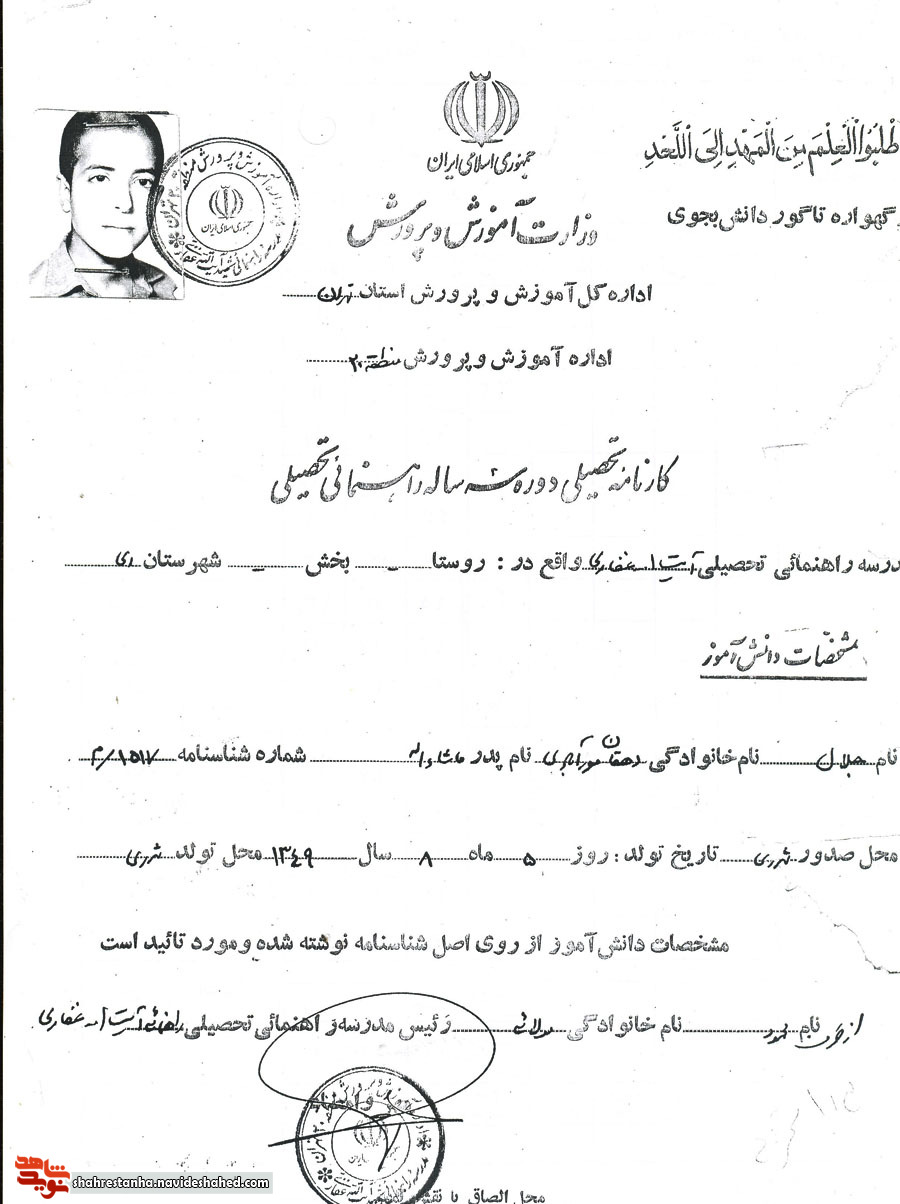 طْلُبُوا الْعِلْمَ مِنَ الْمَهْدِ اِلَى اللَّحْدِ
ز گهواره تا گور دانش بجوی
جمهوری اسلامی ایران
وزارت آموزش و پرورش
اداره کل آموزش و پرورش استان تهران
اداره آموزش و پرورش منطقه ۲۰
کارنامه تحصیلی دوره سه ساله راهنمائی تحصیلی
درسه راهنمائی تحصیلی آیت ا... غفاری واقع در : روستا - بخش - شهرستان ری
مشخصات دانش آموز
نام جلال نام خانوادگی دهقان نام پدر ماشاءاله شماره شناسنامه ۱۵۱۷/م
محل صدور شهرری تاریخ تولد : روز ۵ ماه ۸ سال ۱۳۴۹ محل تولد شهرری
مشخصات دانش آموز از روی اصل شناسنامه نوشته شده و مورد تائید است
نام نام خانوادگی مولائی رئیس مدرسه راهنمائی تحصیلی راهنمائی آیت ا... غفاری
محل الصاق با نقش
نوید شاهد
shahrestanha.navideshahed.com